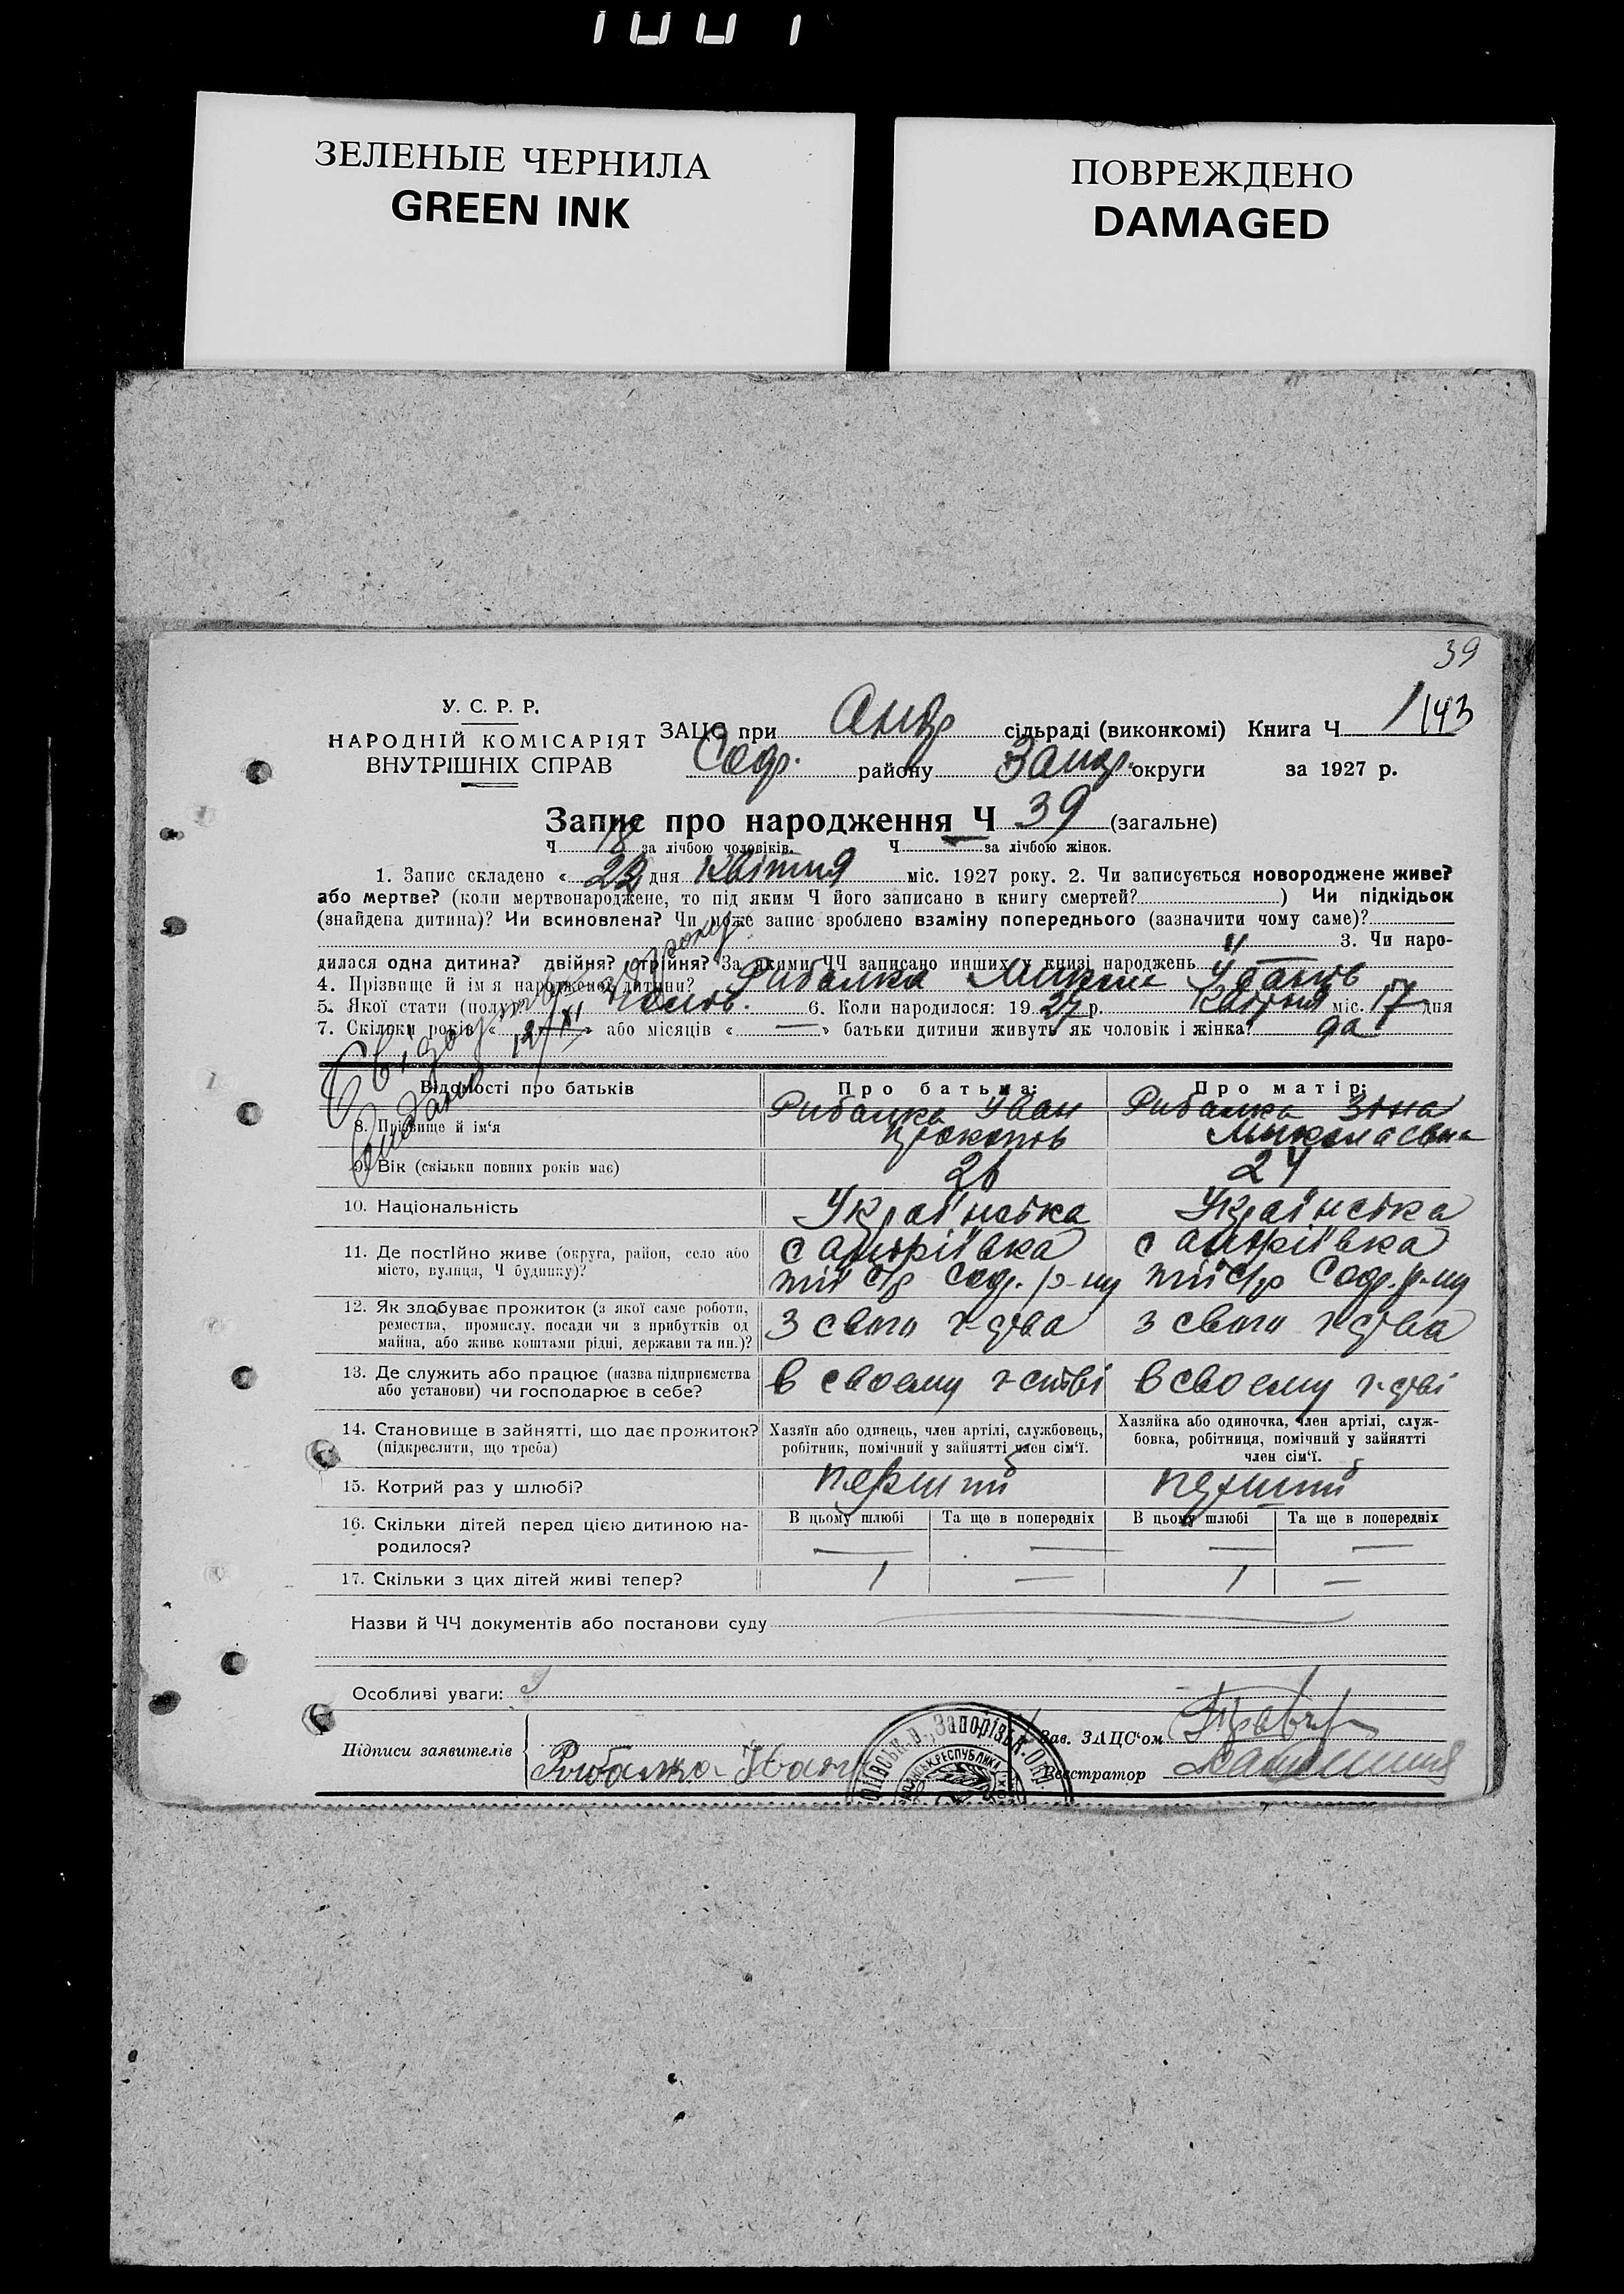 ЗЕЛЕНЫЕ ЧЕРНИЛА
GREEN INK
ПОВРЕЖДЕНО
DAMAGED
39
У. С. Р. Р.
НАРОДНІЙ КОМІСАРІЯТ
ВНУТРІШНІХ СПРАВ
ЗАЦС при Андр сільраді (виконкомі) Книга Ч 1/143
Софр. району Запор. округи за 1927 р.
Запис про народження Ч 39 (загальне)
Ч 18 за лічбою чоловіків. Ч за лічбою жінок.
1. Запис складено « 22 » дня Квітня міс. 1927 року. 2. Чи записується новороджене живе?
або мертве? (коли мертвонароджене, то під яким Ч його записано в книгу смертей? ) Чи підкідьок
(знайдена дитина)? Чи всиновлена? Чи може запис зроблено взаміну попереднього (зазначити чому саме)?
3. Чи наро-
дилася одна дитина? двійня? трійня? За якими ЧЧ записано инших у книзі народжень
4. Прізвище й ім'я народженої дитини? Рибалка
5. Якої стати (полу)? 6. Коли народилося: 1927 р. Квітня міс. 17 дня
7. Скільки років « » або місяців « — » батьки дитини живуть як чоловік і жінка? да
Відомості про батьків
Про батька:
Про матір:
8. Прізвище й ім'я Рибалка Іван Рибалка
Прокопів Миколаєвна
9. Вік (скільки повних років має) 26 24
10. Національність Українська Українська
11. Де постійно живе (округа, район, село або с Андріївка с Андріївка
місто, вулиця, Ч будинку)? тій с/р Софр. р-ну тій с/р Софр. р-ну
12. Як здобуває прожиток (з якої саме роботи,
ремества, промислу, посади чи з прибутків од з свого г-дства з свого г-дства
майна, або живе коштами рідні, держави та ин.)?
13. Де служить або працює (назва підприємства в своєму г-стві в своєму г-стві
або установи) чи господарює в себе?
14. Становище в зайнятті, що дає прожиток? Хазяїн або одинець, член артілі, службовець, Хазяйка або одиночка, член артілі, служ-
(підкреслити, що треба) робітник, помічний у зайнятті член сім'ї. бовка, робітниця, помічний у зайнятті
член сім'ї.
15. Котрий раз у шлюбі? перший перший
16. Скільки дітей перед цією дитиною на- В цьому шлюбі Та ще в попередніх В цьому шлюбі Та ще в попередніх
родилося? — — — —
17. Скільки з цих дітей живі тепер? 1 — 1 —
Назви й ЧЧ документів або постанови суду
Особливі уваги:
Підписи заявителів Рибалка Іван
Зав. ЗАЦС'ом
Реєстратор